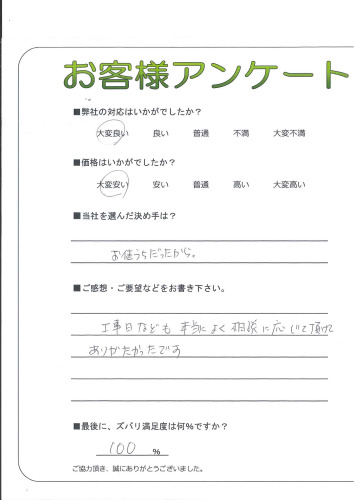 お客様アンケート
■弊社の対応はいかがでしたか？
大変良い 良い 普通 不満 大変不満
■価格はいかがでしたか？
大変安い 安い 普通 高い 大変高い
■当社を選んだ決め手は？
お値うちだったから。
■ご感想・ご要望などをお書き下さい。
工事日なども 本当に よく 相談に応じて頂けて
ありがたかったです
■最後に、ズバリ満足度は何%ですか？
100 %
ご協力頂き、誠にありがとうございました。